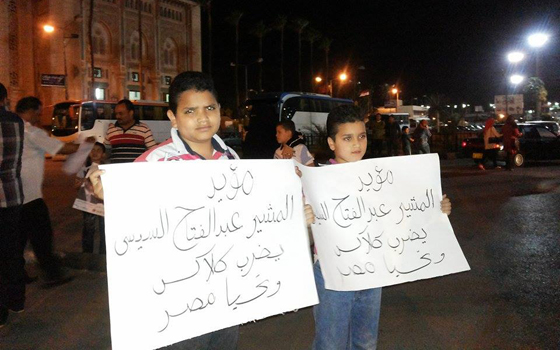 مؤيد
المشير عبد الفتاح السيسى
يضرب كلاكس
وتحيا مصر
مؤيد
المشير عبد الفتاح
يضرب كلاكس
وتحيا مصر